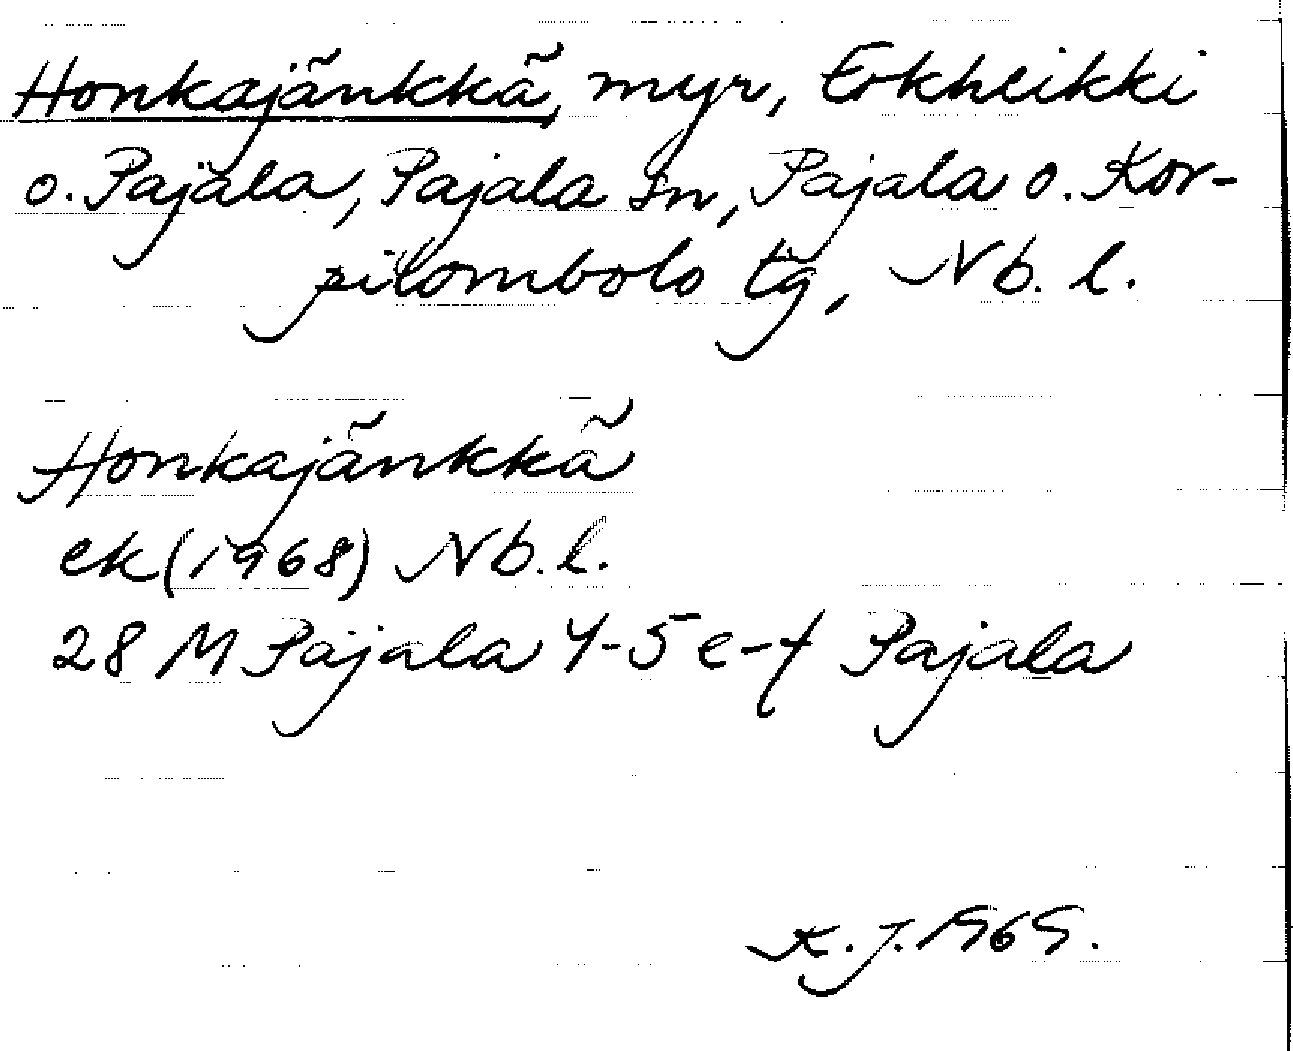 Honkajänkkä, myr, Erkheikki
o. Pajala, Pajala sn, Pajala o. Kor-
pilombolo tg, Nb. l.
Honkajänkkä
ek (1968) Nb. l.
28 M Pajala 4-5 e-f Pajala
K. J. 1969.